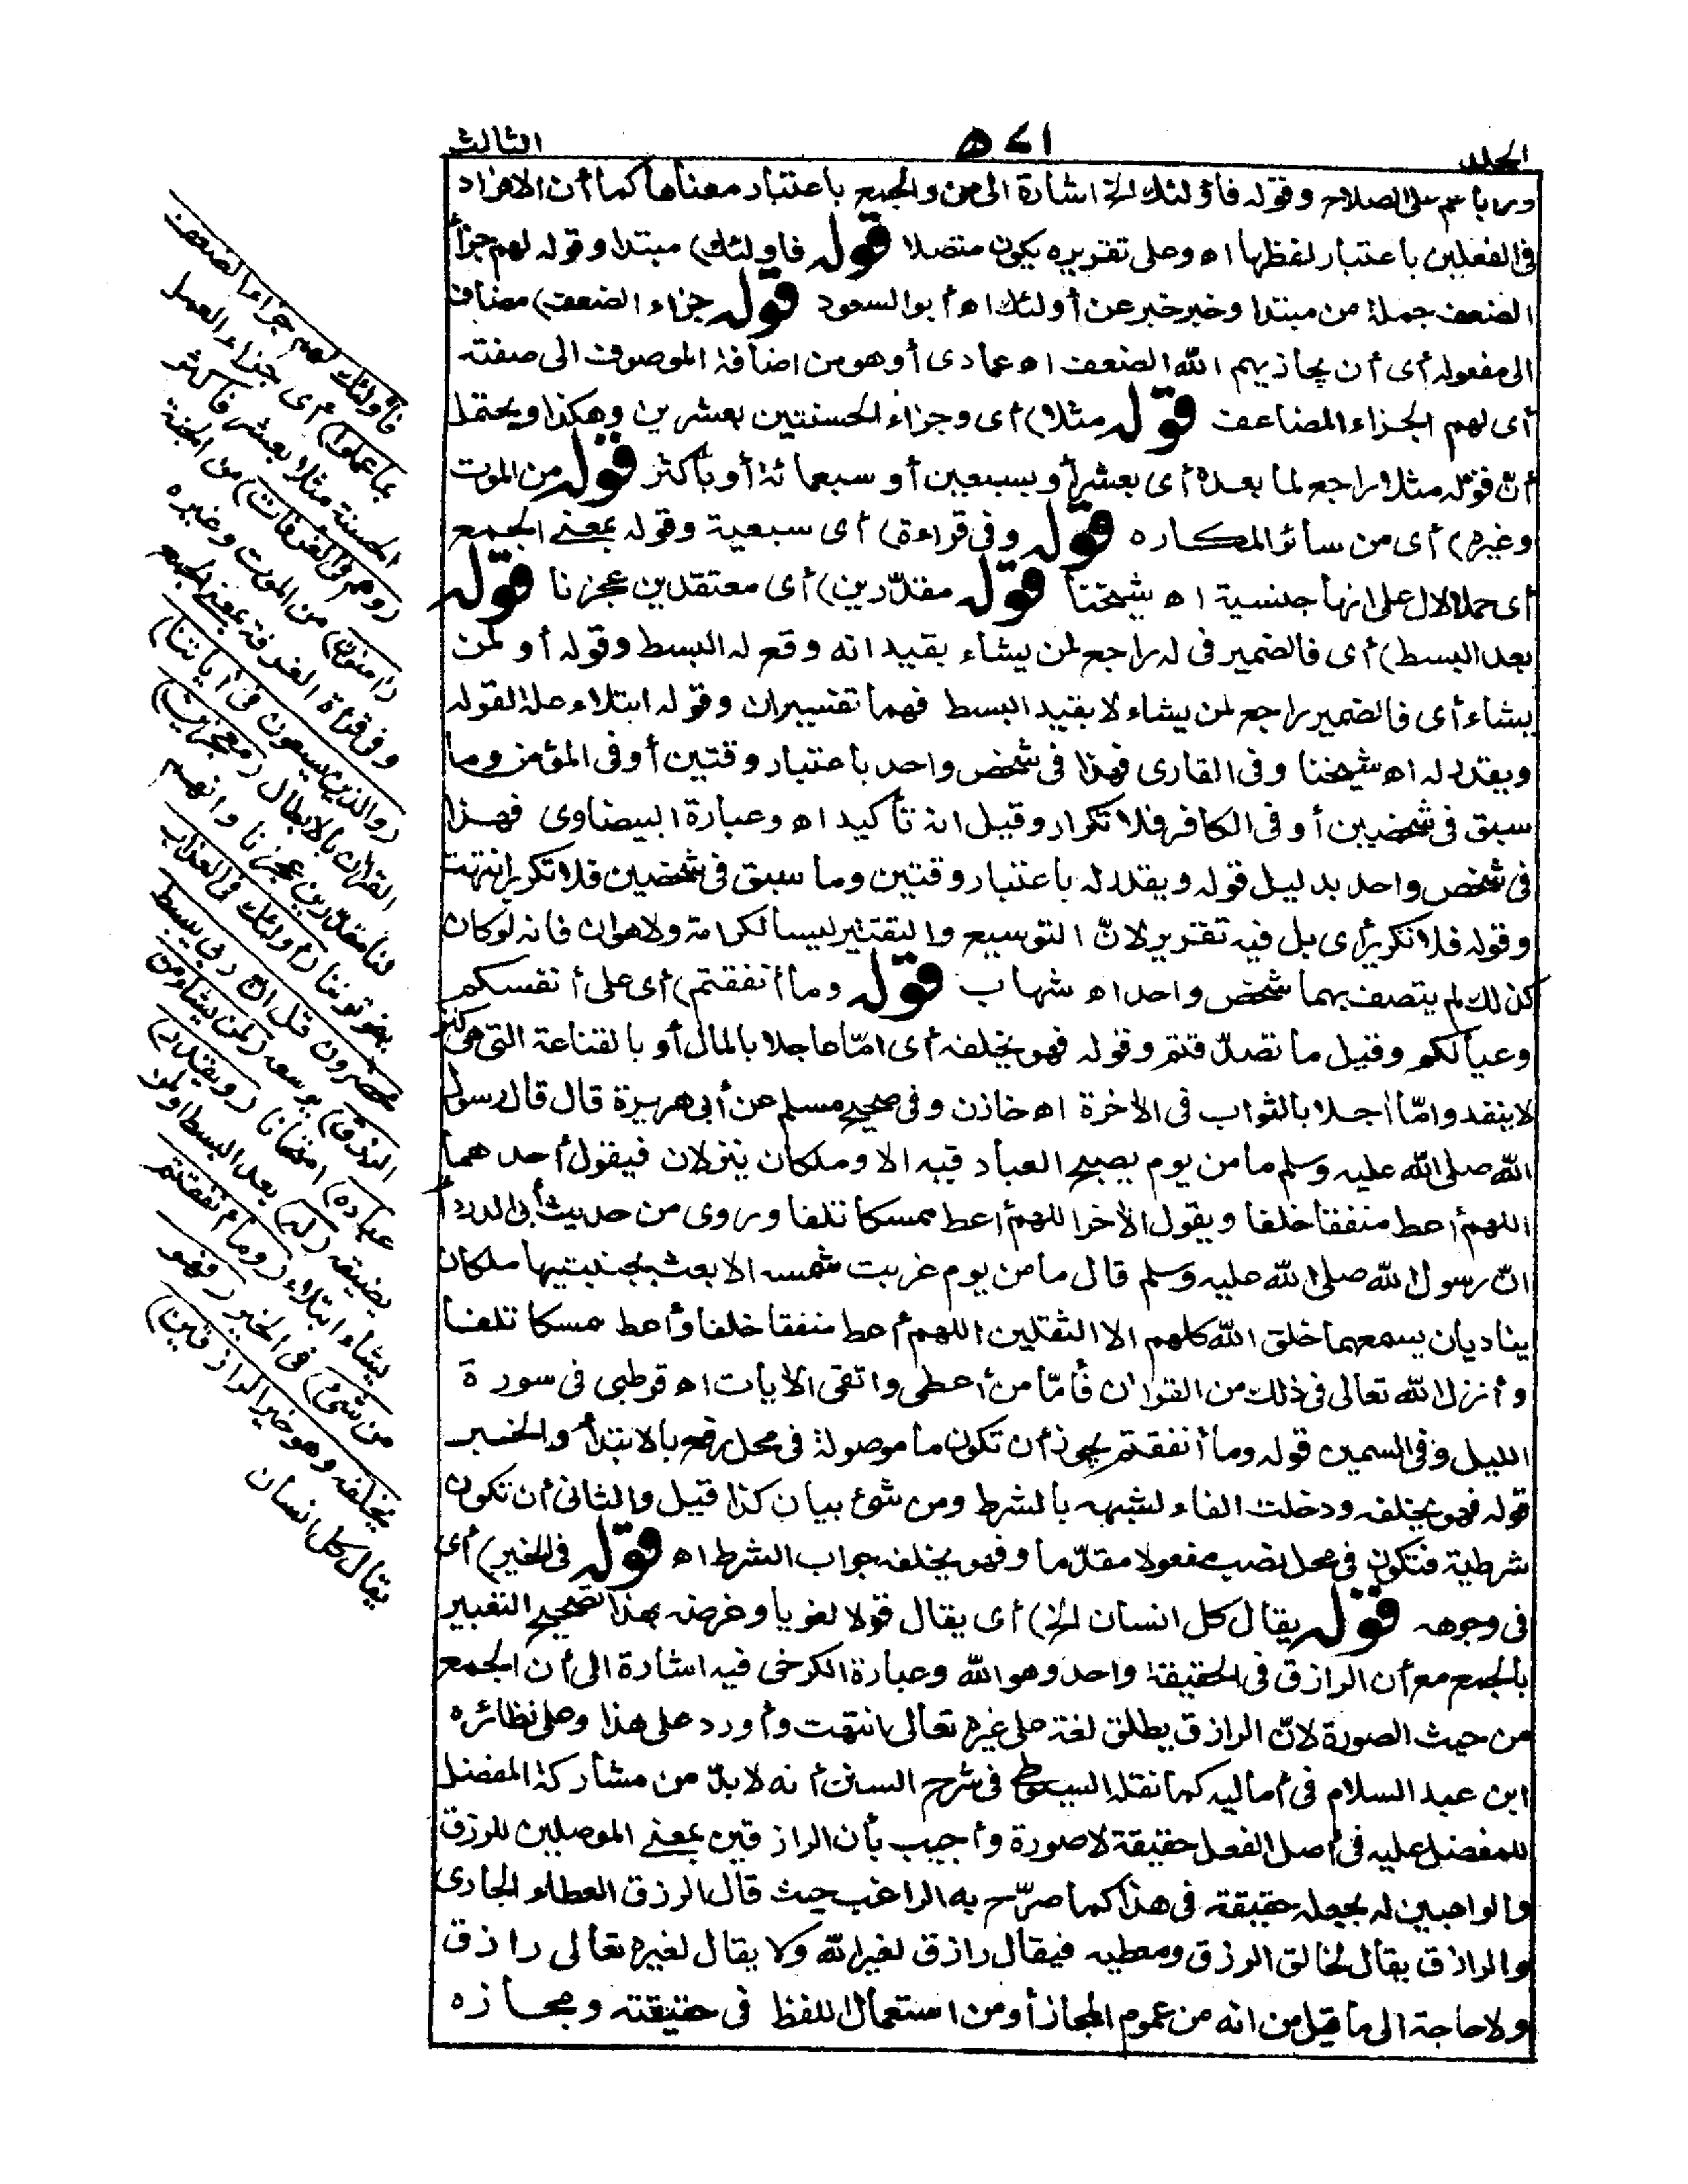 المجلد
٥٧١
الثالث
ورباهم على الصلاح وقوله فأولئك الخ اشارة الى من والجمع باعتبار معناها كما أن الافراد
فى الفعلين باعتبار لفظها اه وعلى تقريره يكون متصلا قوله فاولئك) مبتدا وقوله لهم جزاء
الضعف جملة من مبتدا وخبر خبر عن أولئك اه أبو السعود قوله جزاء الضعف) مضاف
الى مفعوله أى أن يجازيهم الله الضعف اه عمادى أو هو من اضافة الموصوف الى صفته
أى لهم الجزاء المضاعف قوله مثلا) أى وجزاء الحسنتين بعشرين وهكذا ويحتمل
أن قوله مثلا راجع لما بعده أى بعشر أو بسبعين أو سبعمائة أو بأكثر قوله من الموت
وغيره) أى من سائر المكاره قوله وفى قراءة) أى سبعية وقوله بمعنى الجمع
أى حملا لال على انها جنسية اه شيخنا قوله مقدّرين) أى معتقدين عجزنا قوله
بعد البسط) أى فالضمير فى له راجع لمن يشاء بقيد انه وقع له البسط وقوله أو لمن
يشاء أى فالضمير راجع لمن يشاء لا بقيد البسط فهما تفسيران وقوله ابتلاء علة لقوله
ويقدر له اه شيخنا وفى القارى فهذا فى شخص واحد باعتبار وقتين أو فى المؤمن وما
سبق فى شخصين أو فى الكافر فلا تكرار وقيل انه تأكيد اه وعبارة البيضاوى فهذا
فى شخص واحد بدليل قوله ويقدر له باعتبار وقتين وما سبق فى شخصين فلا تكرير انتهت
وقوله فلا تكرير أى بل فيه تقرير لانّ التوسيع والتقتير ليسا لكرامة ولا هوان فانه لو كان
كذلك لم يتصف بهما شخص واحد اه شهاب قوله وما أنفقتم) أى على أنفسكم
وعيالكم وقيل ما تصدّقتم وقوله فهو يخلفه أى امّا عاجلا بالمال أو بالقناعة التى هى كنز
لا ينفد وامّا آجلا بالثواب فى الآخرة اه خازن وفى صحيح مسلم عن أبى هريرة قال قال رسول
الله صلى الله عليه وسلم ما من يوم يصبح العباد فيه الا وملكان ينزلان فيقول أحدهما
اللهم أعط منفقا خلفا ويقول الآخر اللهم أعط ممسكا تلفا وروى من حديث أبى الدرداء
انّ رسول الله صلى الله عليه وسلم قال ما من يوم غربت شمسه الا بعث بجنبتيها ملكان
يناديان يسمعهما خلق الله كلهم الا الثقلين اللهم أعط منفقا خلفا وأعط ممسكا تلفا
وأنزل الله تعالى فى ذلك من القرآن فأمّا من أعطى واتقى الآيات اه قرطبى فى سورة
الليل وفى السمين قوله وما أنفقتم يجوز أن تكون ما موصولة فى محل رفع بالابتداء والخبر
قوله فهو يخلفه ودخلت الفاء لشبهه بالشرط ومن شئ بيان كذا قيل والثانى أن تكون
شرطية فتكون فى محل نصب مفعولا مقدّما وفهو يخلفه جواب الشرط اه قوله فى الخير) أى
فى وجوهه قوله يقال كل انسان الخ) أى يقال قولا لغويا وغرضه بهذا تصحيح التعبير
بالجمع مع أن الرازق فى الحقيقة واحد وهو الله وعبارة الكرخى فيه اشارة الى أن الجمع
من حيث الصورة لانّ الرازق يطلق لغة على غيره تعالى انتهت وأورد على هذا وعلى نظائره
ابن عبد السلام فى أماليه كما نقله السيوطى فى شرح السنن أنه لا بدّ من مشاركة المفضل
للمفضل عليه فى أصل الفعل حقيقة لا صورة وأجيب بأن الرازقين بمعنى الموصلين للرزق
والواهبين له بجعله حقيقة فى هذا كما صرّح به الراغب حيث قال الرزق العطاء الجارى
والرازق يقال لخالق الرزق ومعطيه فيقال رازق لغير الله ولا يقال لغيره تعالى رازق
ولا حاجة الى ما قيل من انه من عموم المجاز أو من استعمال اللفظ فى حقيقته ومجازه
فأولئك لهم جزاء الضعف
بما عملوا) أى جزاء العمل
الحسنة مثلا بعشر فأكثر
(وهم فى الغرفات) من الجنة
(آمنون) من الموت وغيره
وفى قراءة الغرفة بمعنى الجمع
(والذين يسعون فى آياتنا)
القرآن بالابطال (معجزين)
لنا مقدّرين عجزنا وانهم
يفوتوننا (أولئك فى العذاب
محضرون قل انّ ربى يبسط
الرزق) يوسعه (لمن يشاء من
عباده) امتحانا (ويقدر)
يضيقه (له) بعد البسط أو لمن
يشاء ابتلاء (وما أنفقتم
من شئ) فى الخير (فهو
يخلفه وهو خير الرازقين)
يقال كل انسان